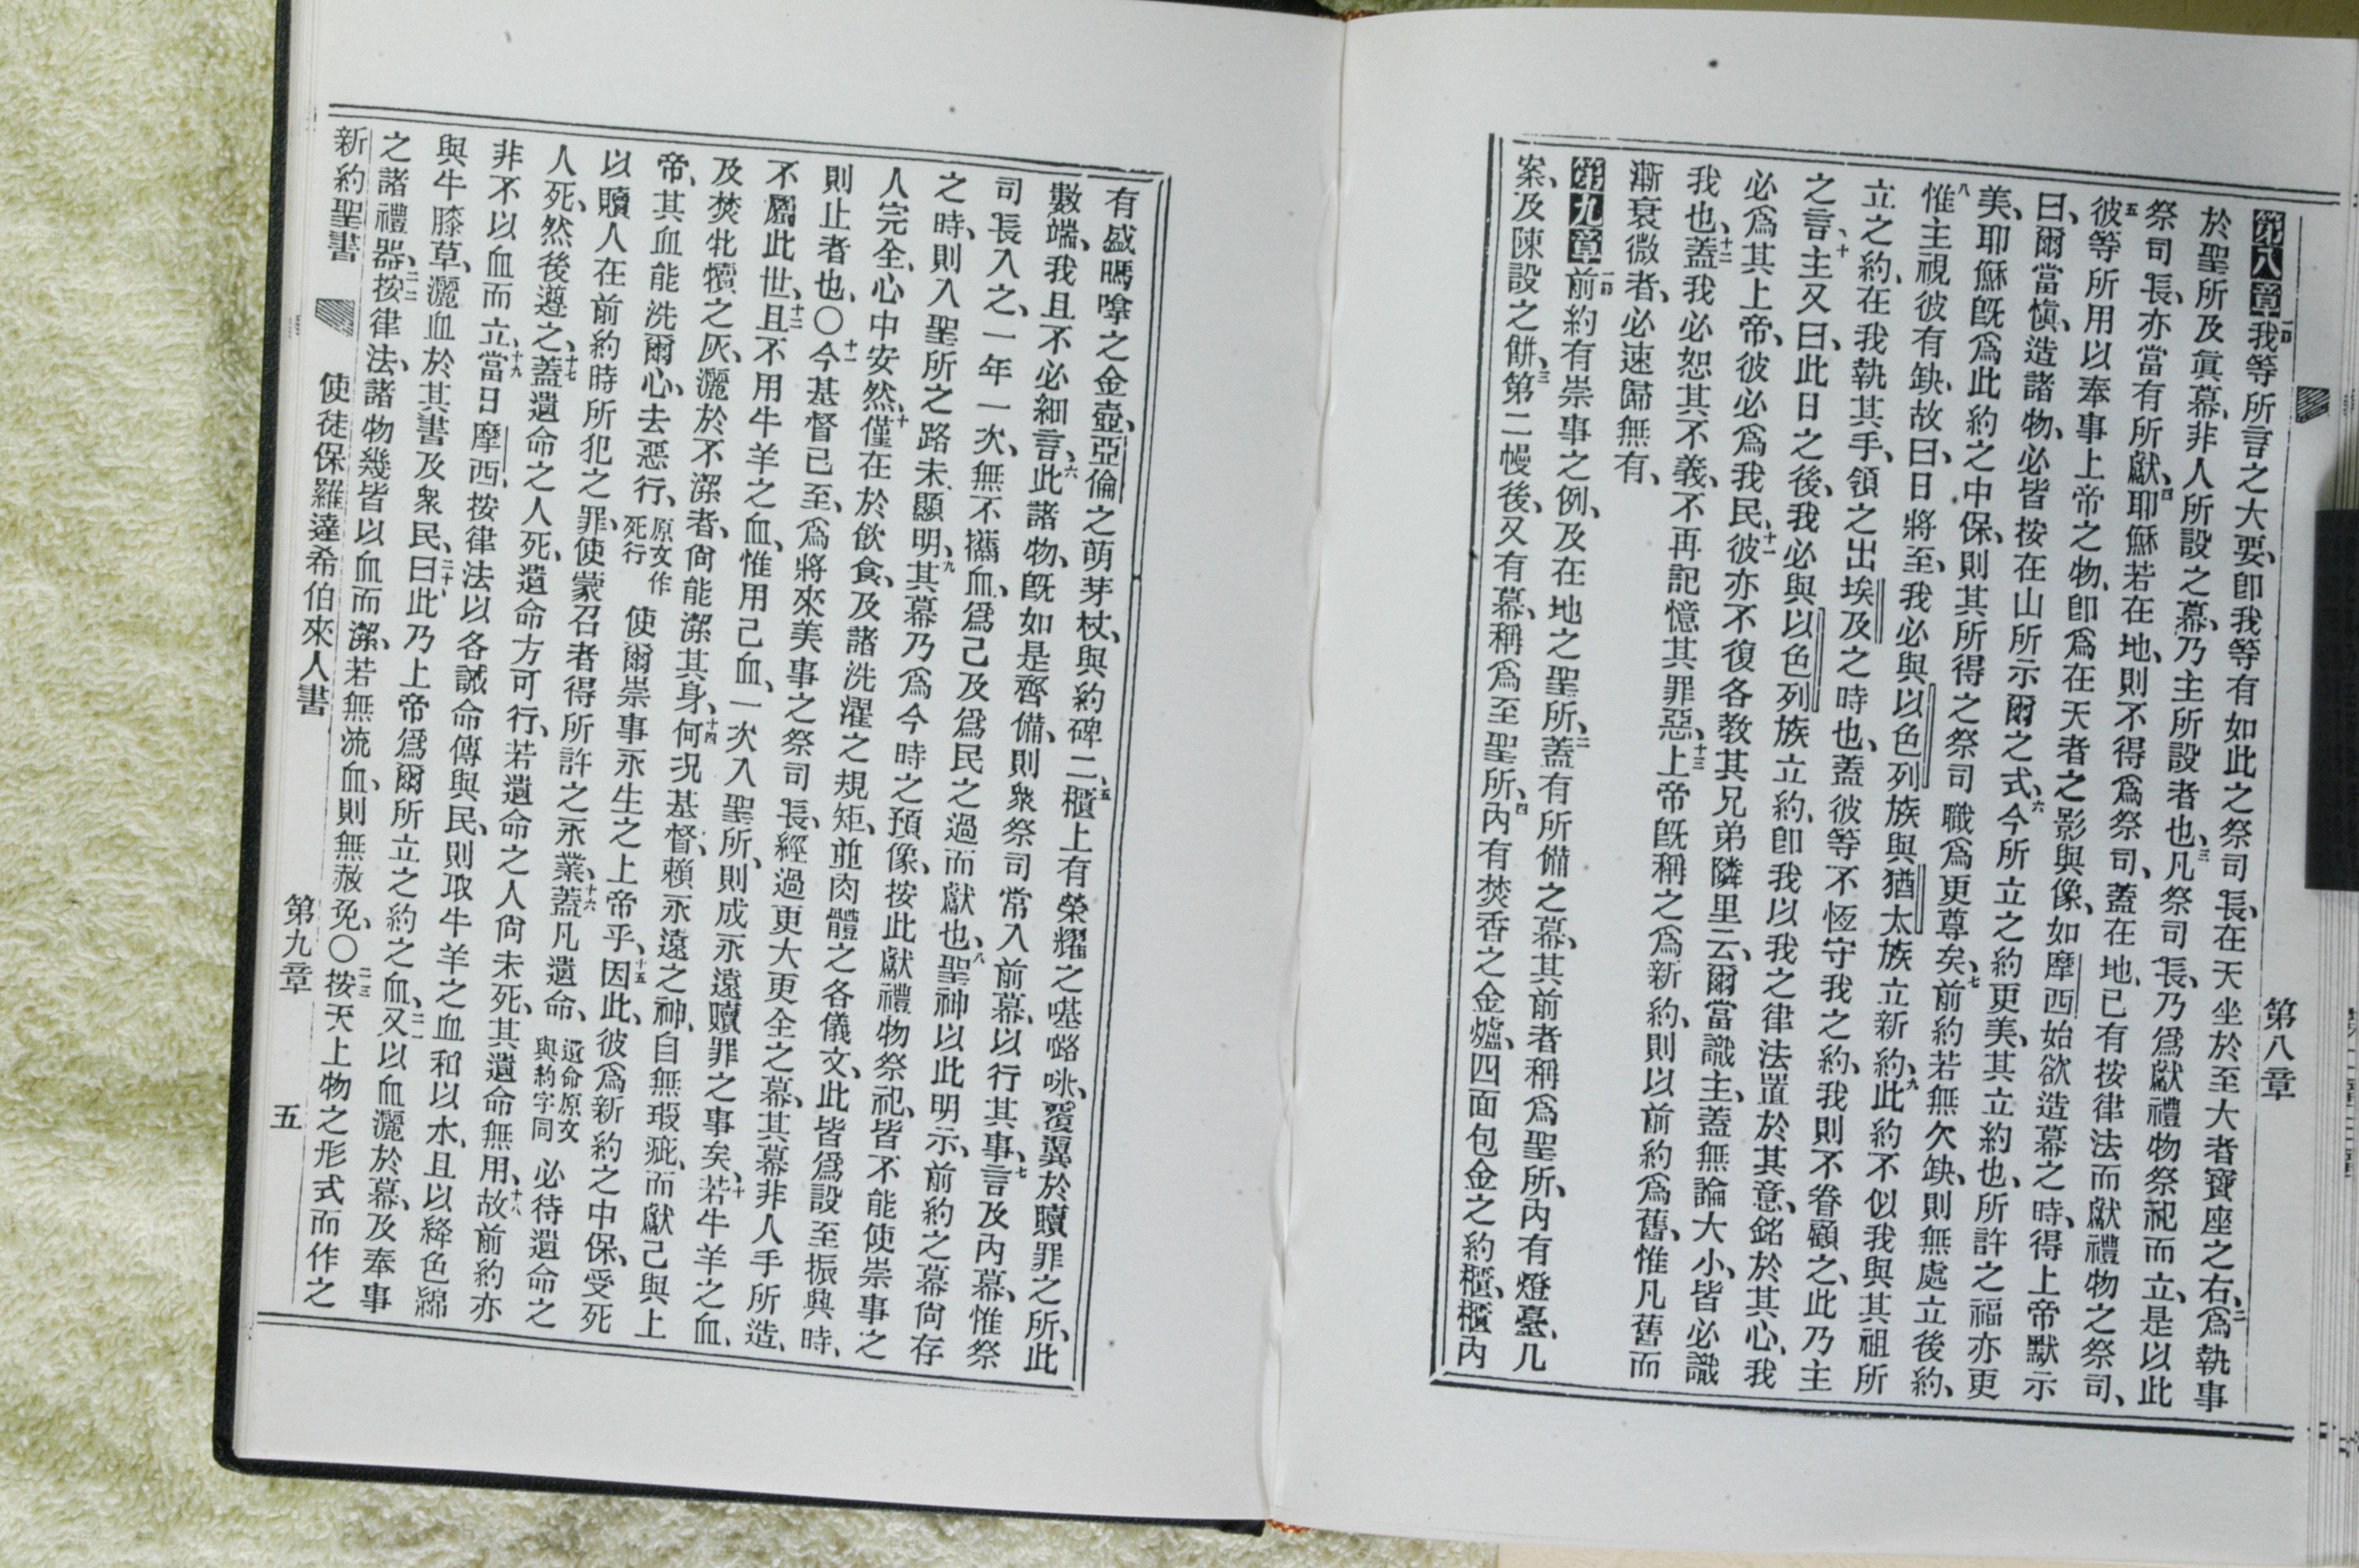 第八章
第八章一節我等所言之大要、卽我等有如此之祭司長、在天坐於至大者寶座之右、二爲執事
於聖所及眞幕、非人所設之幕、乃主所設者也、三凡祭司長、乃爲獻禮物祭祀而立、是以此
祭司長、亦當有所獻、四耶穌若在地、則不得爲祭司、蓋在地、已有按律法而獻禮物之祭司、
五彼等所用以奉事上帝之物、卽爲在天者之影與像、如摩西始欲造幕之時、得上帝默示
曰、爾當愼、造諸物、必皆按在山所示爾之式、六今所立之約更美、其立約也、所許之福亦更
美、耶穌旣爲此約之中保、則其所得之祭司職爲更尊矣、七前約若無欠缺、則無處立後約、
八惟主視彼有缺、故曰、日將至、我必與以色列族與猶太族立新約、九此約不似我與其祖所
立之約、在我執其手、領之出埃及之時也、蓋彼等不恆守我之約、我則不眷顧之、此乃主
之言、十主又曰、此日之後、我必與以色列族立約、卽我以我之律法置於其意、銘於其心、我
必爲其上帝、彼必爲我民、十一彼亦不復各教其兄弟隣里云、爾當識主、蓋無論大小、皆必識
我也、十二蓋我必恕其不義、不再記憶其罪惡、十三上帝旣稱之爲新約、則以前約爲舊、惟凡舊而
漸衰微者、必速歸無有、
第九章一節前約有崇事之例、及在地之聖所、二蓋有所備之幕、其前者稱爲聖所、內有燈臺、几
案、及陳設之餅、三第二幔後、又有幕、稱爲至聖所、四內有焚香之金爐、四面包金之約櫃、櫃內
有盛嗎嗱之金壺、亞倫之萌芽杖、與約碑二、五櫃上有榮耀之𠼻𡀔咏、覆翼於贖罪之所、此
數端、我且不必細言、六此諸物、旣如是齊備、則衆祭司常入前幕、以行其事、七言及內幕、惟祭
司長入之、一年一次、無不攜血、爲己及爲民之過而獻也、八聖神以此明示、前約之幕尙存
之時、則入聖所之路未顯明、九其幕乃爲今時之預像、按此獻禮物祭祀、皆不能使崇事之
人完全、心中安然、十僅在於飲食、及諸洗濯之規矩、並肉體之各儀文、此皆爲設至振興時、
則止者也、〇十一今基督已至、爲將來美事之祭司長、經過更大更全之幕、其幕非人手所造、
不屬此世、十二且不用牛羊之血、惟用己血、一次入聖所、則成永遠贖罪之事矣、十三若牛羊之血、
及焚牝犢之灰、灑於不潔者、尙能潔其身、十四何况基督、賴永遠之神、自無瑕疵、而獻己與上
帝、其血能洗爾心、去惡行、原文作死行使爾崇事永生之上帝乎、十五因此、彼爲新約之中保、受死
以贖人在前約時所犯之罪、使蒙召者得所許之永業、十六蓋凡遺命、遺命原文與約字同必待遺命之
人死、然後遵之、十七蓋遺命之人死、遺命方可行、若遺命之人尙未死、其遺命無用、十八故前約亦
非不以血而立、十九當日摩西、按律法以各誡命傳與民、則取牛羊之血和以水、且以絳色綿
與牛膝草、灑血於其書及衆民、二十曰、此乃上帝爲爾所立之約之血、二一又以血灑於幕、及奉事
之諸禮器、二二按律法、諸物幾皆以血而潔、若無流血、則無赦免、〇二三按天上物之形式而作之
新約聖書 使徒保羅達希伯來人書 第九章 五